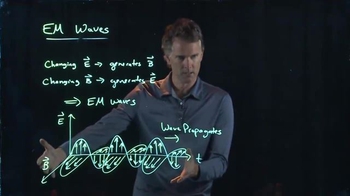 EM Waves
Changing E⃗ → generates B⃗
Changing B⃗ → generates E⃗
⇒ EM Waves
E⃗
Wave Propagates
→
B⃗
t